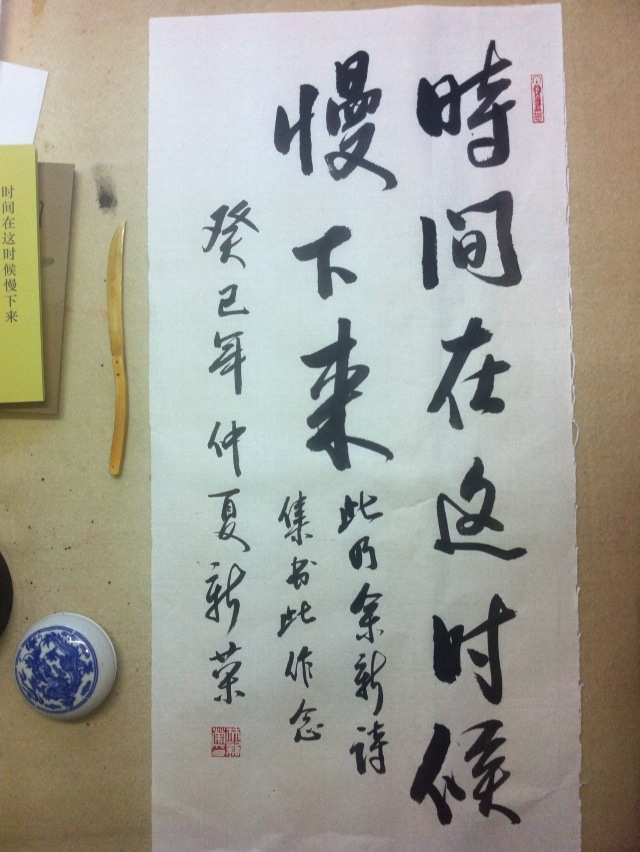 時间在这时候
慢下来
此乃余新詩
集书此作念
癸巳年仲夏新荣
时间在这时候慢下来